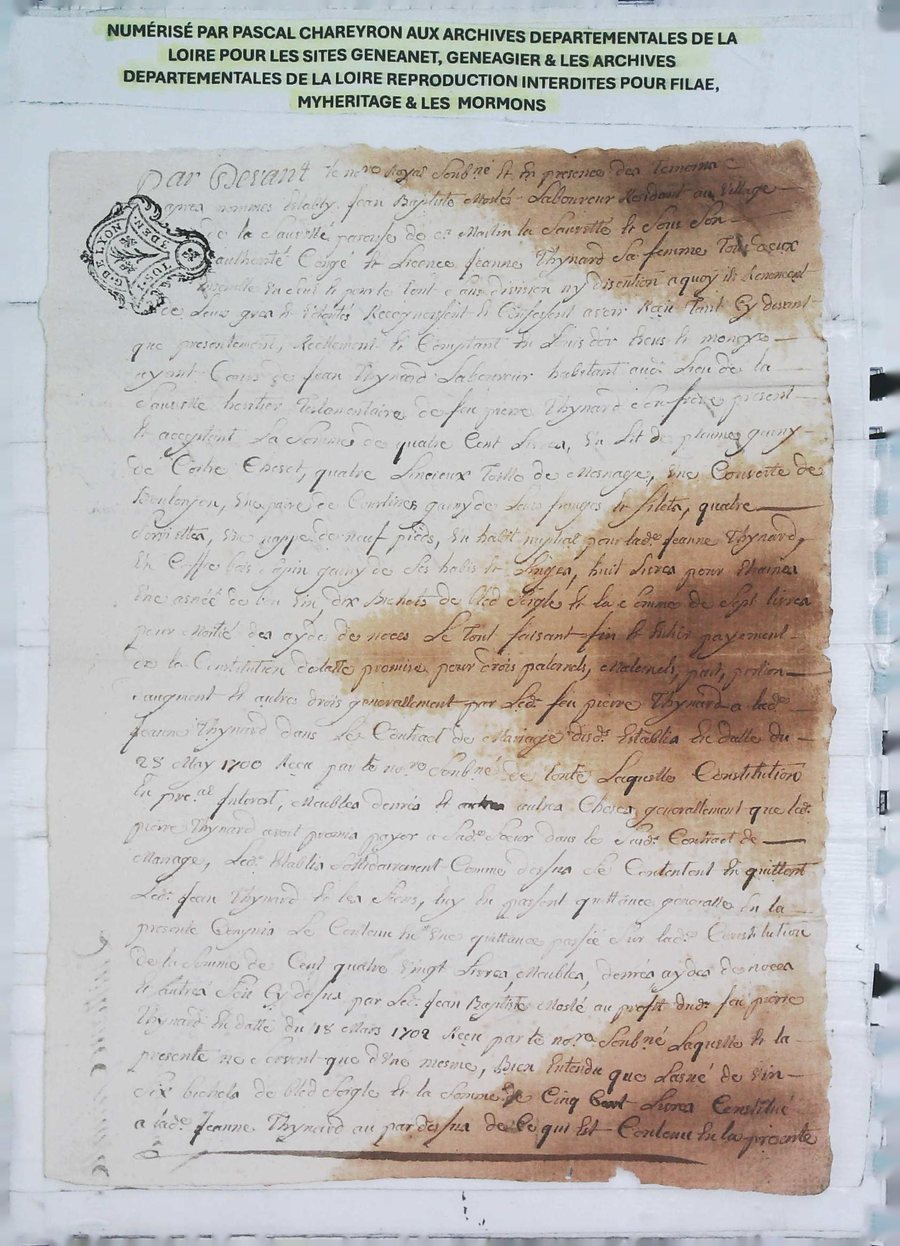 NUMÉRISÉ PAR PASCAL CHAREYRON AUX ARCHIVES DEPARTEMENTALES DE LA
LOIRE POUR LES SITES GENEANET, GENEAGIER & LES ARCHIVES
DEPARTEMENTALES DE LA LOIRE REPRODUCTION INTERDITES POUR FILAE,
MYHERITAGE & LES MORMONS
Par Devant le nore Royal Soubné Et En presence des temoins
apres nommes Estably, Jean Baptiste Laboureur Residant au Village
de la Sauvetté paroisse de St Martin la Sauvetté Et Sous Son
authorité Congé Et Licence Jeanne Thynard Sa femme Tous deux
Ensemble Un Seul Et pour le tout Sans division ny discution a quoy ils Renoncent
De Leurs gres Et Recognoissent Et Confessent avoir Reçu tant Cy devant
que presentement, Reellement Et Comptant En Louis d'or Escus Et monoye
ayant Cours de Jean Thynard Laboureur habitant audt Lieu de la
Sauvette heritier Testamentaire de feu pierre Thynard Son frere present
Et acceptant La Somme de quatre Cent Livres, Un Lit de plume garny
de Coitre Chevet, quatre Linceux Toille de Mesnage, Une Couverte de
Une paire de Courtines garny de Leurs franges Et filets, quatre
Serviettes, Une nappe de neuf pieds, Un habit nuptial pour lade Jeanne Thynard,
Un Coffre bois Sapin garny de Ses habits Et Linges, huit Livres pour
Une asnée de bon Vin, dix Bichets de bled Seigle Et la Somme de Sept livres
pour Moitié des aydes de noces Le tout faisant fin Et Entier payement
de la Constitution dotalle promise pour droits paternels, Maternels, part, portion
augment Et autres droits generallement par Led. feu pierre Thynard a lade
Jeanne Thynard dans Le Contract de Mariage disds Establis En datte du
28 May 1700 Reçu par le nore Soubné De toute Laquelle Constitution
En pre.al Interest, Meubles denrés Et autres Choses generallement que led.
pierre Thynard avoit promis payer a Sade Sœur dans le Sudt Contract de
Mariage, Leds Establis Sollidairement Comme dessus Se Contentent En quittent
Led. Jean Thynard Et les Siens, luy En passent quittance generalle En la
presente Compris Le Contenu En Une quittance passée Sur lade Constitution
de la Somme de Cent quatre Vingt Livres Meubles, denrés aydes de noces
Et autres Sou Cy dessus par Led. Jean Baptiste au profit dudt feu pierre
Thynard En datte du 18 Mars 1702 Reçu par le nore Soubné Laquelle Et la
presente ne Servent que d'Une mesme, Bien Entendu que Lasné de Vin
Six bichets de bled Seigle Et la Somme De Cinq Cent Livres Constitué
a lade Jeanne Thynard au par dessus de Ce qui Est Contenu En la presente